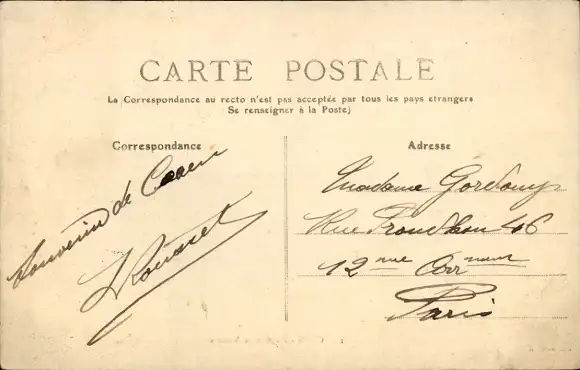 CARTE POSTALE
La Correspondance au recto n'est pas acceptée par tous les pays etrangers
Se renseigner à la Poste)
Correspondance
Souvenir de Caen
Rousset
Adresse
Madame
Rue Proudhon 46
12me Arrment
Paris